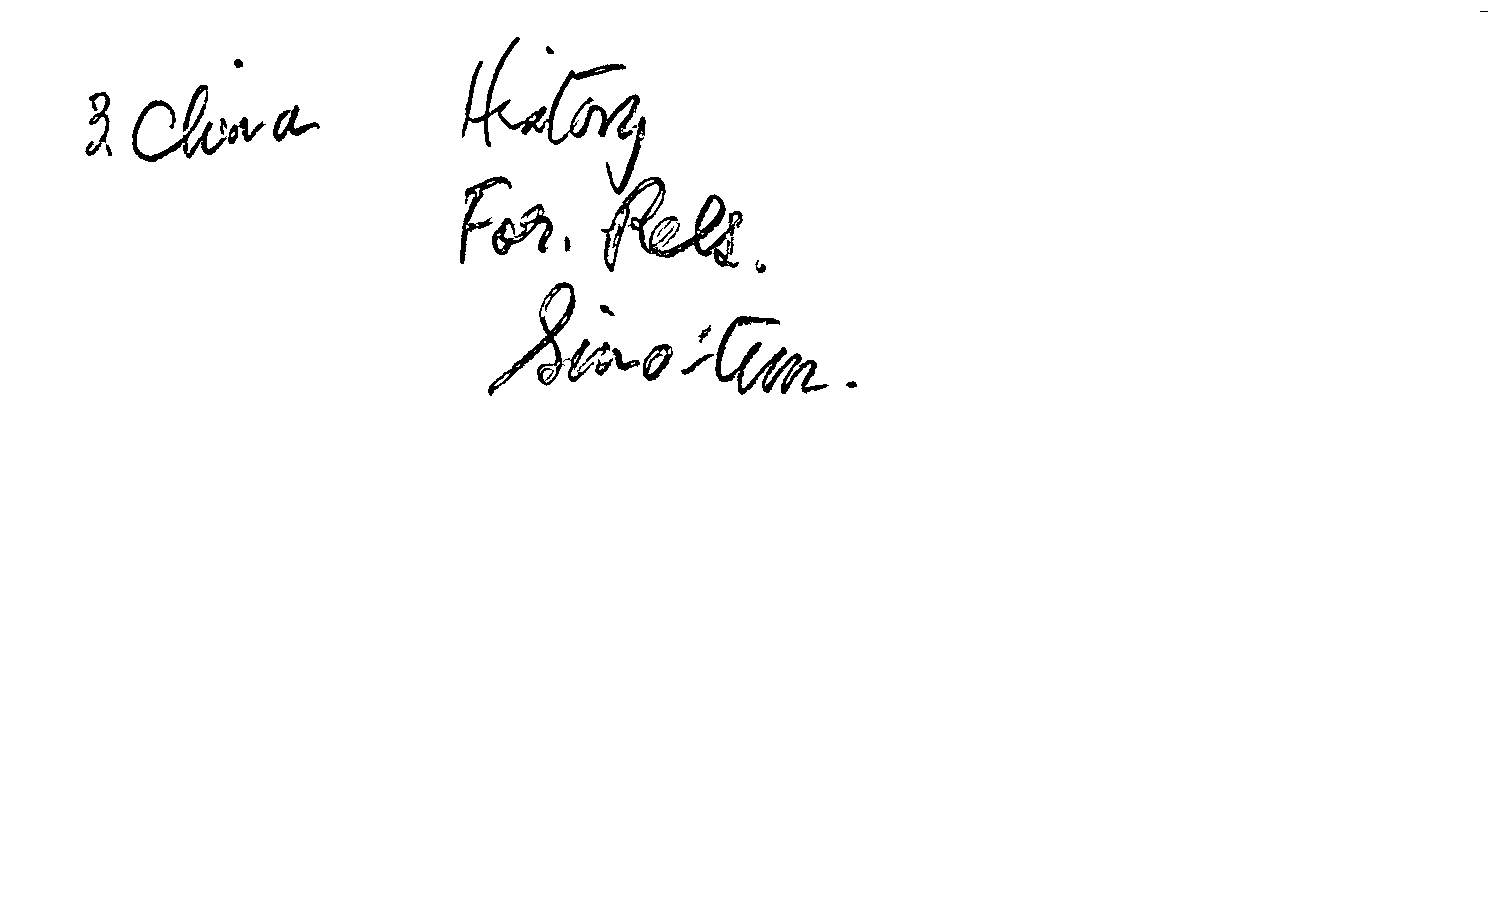 3. China History
For. Rels.
Sino-